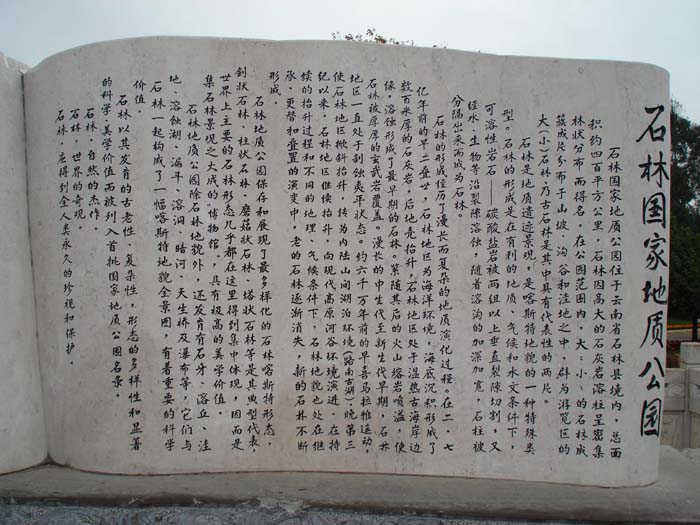 石林国家地质公园
石林国家地质公园位于云南省石林县境内，总面
积约四百平方公里，石林因高大的石灰岩溶柱呈密集
林状分布而得名。在公园范围内，大、小、的石林成
簇成片分布于山坡、沟谷和洼地之中，辟为游览区的
大(小)石林乃古石林是其中具有代表性的两片。
石林是地质遗迹景观，是喀斯特地貌的一种特殊类
型。石林的形成是在有利的地质、气候和水文条件下，
可溶性岩石——碳酸盐岩被两组以上垂直裂隙切割，又
经水、生物等沿裂隙溶蚀，随着溶沟的加深加宽，石柱被
分隔出来而成为石林。
石林的形成经历了漫长而复杂的地质演化过程。在二·七
亿年前的早二叠世，石林地区为海洋环境，海底沉积形成了
数百米厚的石灰岩，后地壳抬升，石林地区处于湿热古海岸边
缘，溶蚀形成了最早期的石林。紧随其后的火山熔岩喷溢，使
石林被厚厚的玄武岩覆盖。漫长的中生代至新生代早期，石林
地区一直处于剥蚀夷平状态。约六千万年前的早喜马拉雅运动，
使石林地区掀斜抬升，转为内陆山间湖泊环境(路南古湖)。晚第三
纪以来，石林地区继续抬升，向现代高原河谷环境演进。在持
续的抬升过程和不同的地理、气候条件下，石林地貌也处在继
承、更替和叠置的演变中，老的石林逐渐消失，新的石林不断
形成。
石林地质公园保存和展现了最多样化的石林喀斯特形态，
剑状石林、柱状石林、蘑菇状石林、塔状石林等是其典型代表，
世界上主要的石林形态几乎都在这里得到集中体现，因而是
集石林景观之大成的“博物馆”，具有极高的美学价值。
石林地质公园除石林地貌外，还发育有石牙、溶丘、洼
地、溶蚀湖、漏斗、溶洞、暗河、天生桥及瀑布等，它们与
石林一起构成了一幅喀斯特地貌全景图，有着重要的科学
价值。
石林以其发育的古老性、复杂性，形态的多样性和显著
的科学、美学价值而被列入首批国家地质公园名录。
石林，自然的杰作。
石林，世界的奇观。
石林，应得到全人类永久的珍视和保护。